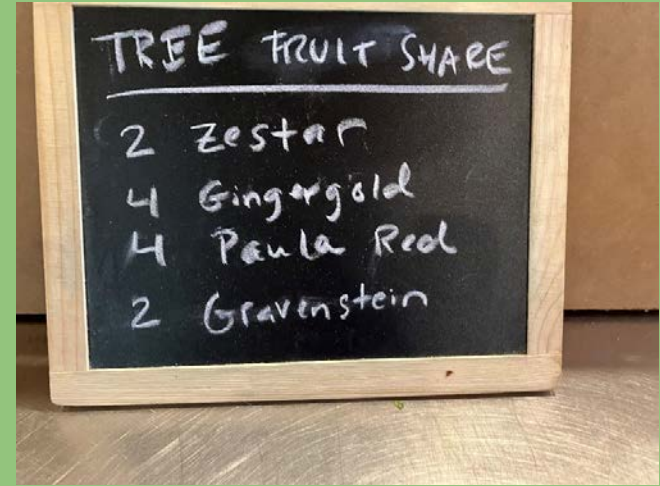 TREE FRUIT SHARE
2 Zestar
4 Gingergold
4 Paula Red
2 Gravenstein